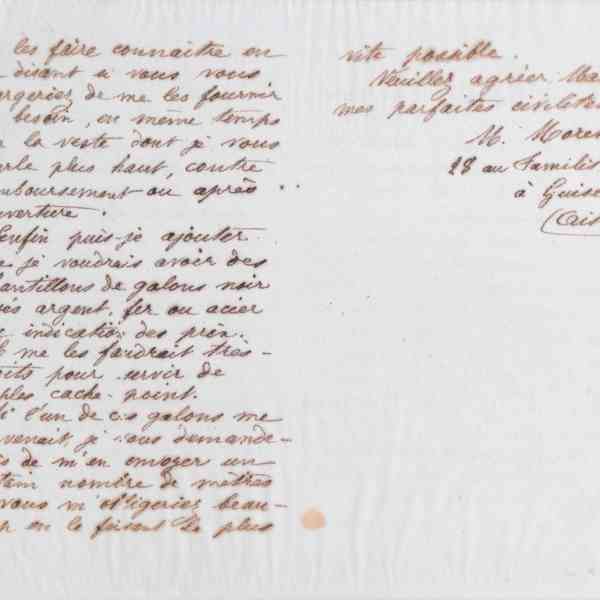 les faire connaitre en
disant si vous vous
argeriez de me les fournir
besoin, en même temps
la veste dont je vous
arle plus haut, contre
mboursement ou après
uverture.
Enfin puis-je ajouter
e je voudrais avoir des
hantillons de galons noir
és argent, fer ou acier
indication des prix.
l me les faudrait très-
its pour servir de
ples cache-point.
Si l'un de ces galons me
venait, je vous demande-
is de m'en envoyer un
tain nombre de mètres
vous m'obligeriez beau-
p en le faisant le plus
vite possible.
Veuillez agréer Ma
mes parfaites civilités
M. More
28 au Familis
à Guise
(Ais